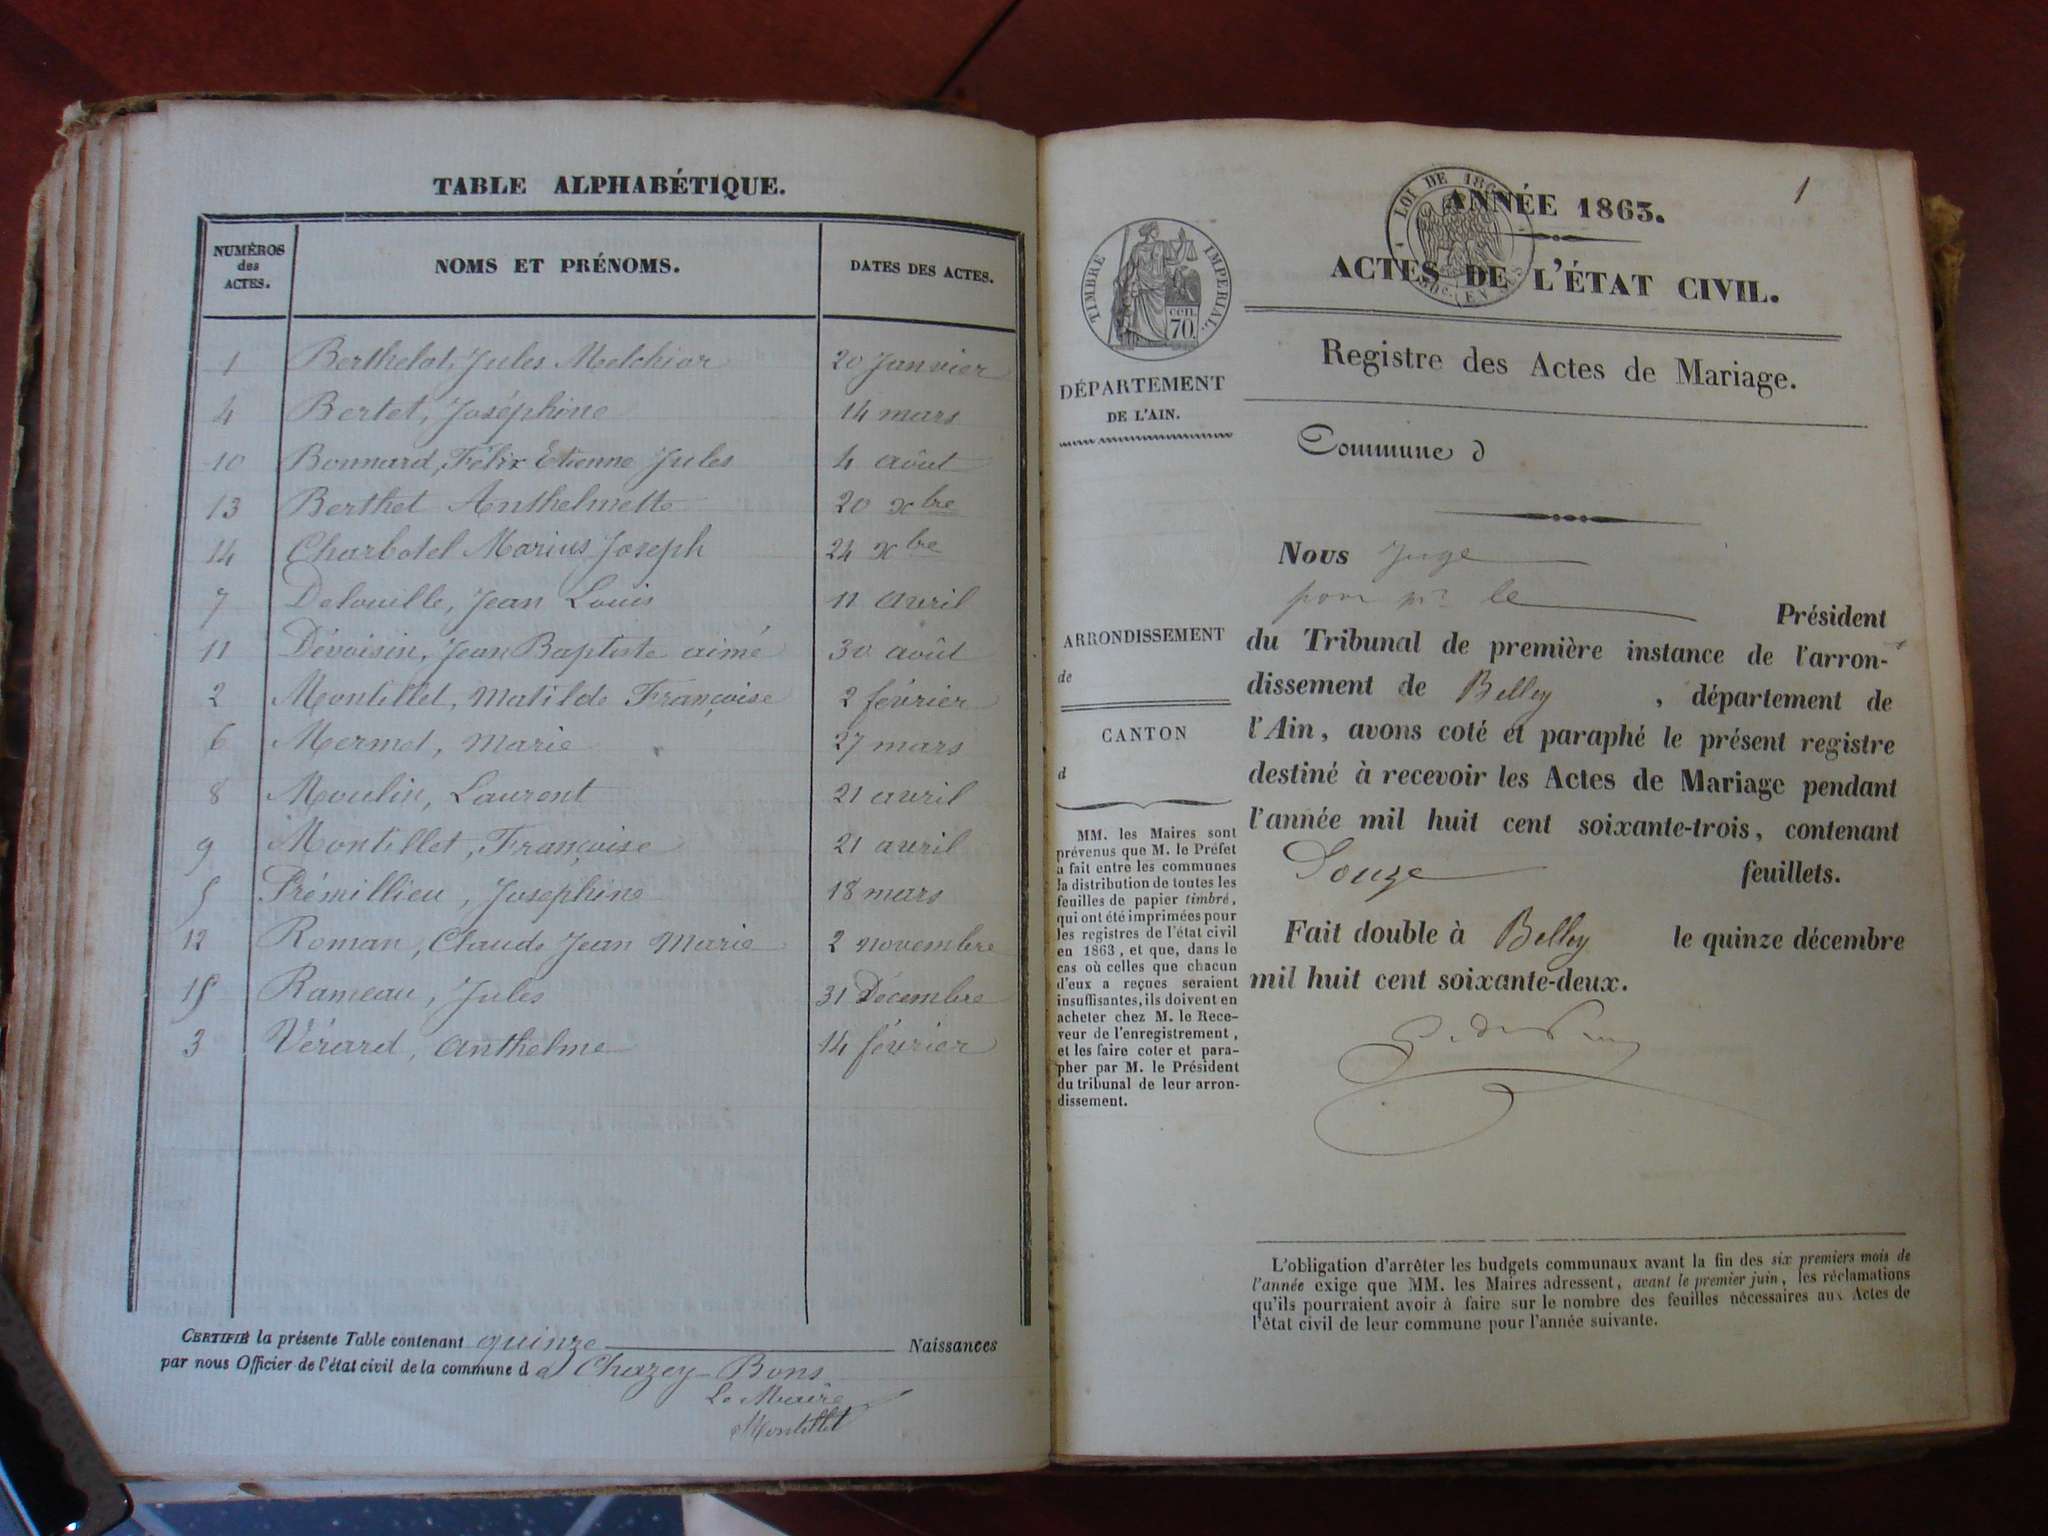 TABLE ALPHABÉTIQUE.
NUMÉROS des ACTES. NOMS ET PRÉNOMS. DATES DES ACTES.
1 Berthelot, Jules Melchior 20 Janvier
4 Bertet, Joséphine 14 mars
10 Bonnard, Félix Etienne Jules 4 août
13 Berthet Anthelmette 20 xbre
14 Charbotel Marius Joseph 24 xbre
7 Delouille, Jean Louis 11 avril
11 Dévoisin, Jean Baptiste aimé 30 août
2 Montillet, Matilde Françoise 2 février
6 Mermet, Marie 27 mars
8 Moulin, Laurent 21 avril
9 Montillet, Françoise 21 avril
5 Prémillieu, Josephine 18 mars
12 Roman, Claude Jean Marie 2 novembre
15 Rameau, Jules 31 Décembre
3 Vérard, Anthelme 14 février
CERTIFIÉ la présente Table contenant quinze Naissances
par nous Officier de l'état civil de la commune d e Chazey-Bons
Le Maire
Montillet
1
LOI DE 186
ANNÉE 1863.
ACTES DE L'ÉTAT CIVIL.
Registre des Actes de Mariage.
TIMBRE IMPÉRIAL.
cen. 70
DÉPARTEMENT
DE L'AIN.
Commune d
Nous Juge
pour Mr. le Président
du Tribunal de première instance de l'arron-
dissement de Belley, département de
l'Ain, avons coté et paraphé le présent registre
destiné à recevoir les Actes de Mariage pendant
l'année mil huit cent soixante-trois, contenant
Douze feuillets.
Fait double à Belley le quinze décembre
mil huit cent soixante-deux.
ARRONDISSEMENT
de
CANTON
d
MM. les Maires sont
prévenus que M. le Préfet
a fait entre les communes
la distribution de toutes les
feuilles de papier timbré,
qui ont été imprimées pour
les registres de l'état civil
en 1863, et que, dans le
cas où celles que chacun
d'eux a reçues seraient
insuffisantes, ils doivent en
acheter chez M. le Rece-
veur de l'enregistrement,
et les faire coter et para-
pher par M. le Président
du tribunal de leur arron-
dissement.
L'obligation d'arrêter les budgets communaux avant la fin des six premiers mois de
l'année exige que MM. les Maires adressent, avant le premier juin, les réclamations
qu'ils pourraient avoir à faire sur le nombre des feuilles nécessaires aux Actes de
l'état civil de leur commune pour l'année suivante.